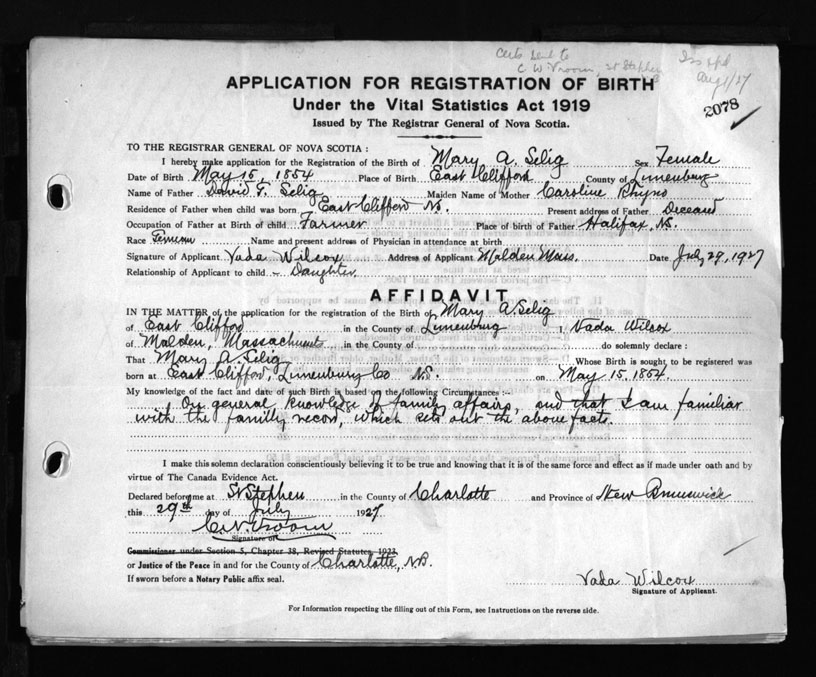 Certs sent to
C W Vroom, St Stephen
Aug 1/27
2078
APPLICATION FOR REGISTRATION OF BIRTH
Under the Vital Statistics Act 1919
Issued by The Registrar General of Nova Scotia.
TO THE REGISTRAR GENERAL OF NOVA SCOTIA :
I hereby make application for the Registration of the Birth of Mary A. Selig Sex Female
Date of Birth May 15, 1854 Place of Birth East Clifford County of Lunenburg
Name of Father David F. Selig Maiden Name of Mother Caroline Rhyno
Residence of Father when child was born East Clifford NS. Present address of Father Deceased
Occupation of Father at Birth of child Farmer Place of birth of Father Halifax, NS.
Race Name and present address of Physician in attendance at birth
Signature of Applicant Vada Wilcox Address of Applicant Malden Mass. Date July 29, 1927
Relationship of Applicant to child - Daughter
AFFIDAVIT
IN THE MATTER of the application for the registration of the Birth of Mary A. Selig
of East Clifford in the County of Lunenburg I, Vada Wilcox
of Malden, Massachusetts in the County of do solemnly declare :
That Mary A. Selig Whose Birth is sought to be registered was
born at East Clifford, Lunenburg Co NS. on May 15. 1854
My knowledge of the fact and date of such Birth is based on the following Circumstances :-
On general knowledge of family affairs, and that I am familiar
with the family record, which sets out the above facts.
I make this solemn declaration conscientiously believing it to be true and knowing that it is of the same force and effect as if made under oath and by
virtue of The Canada Evidence Act.
Declared before me at St Stephen in the County of Charlotte and Province of New Brunswick
this 29th day of July 1927
C. W. Vroom
Signature of
Commissioner under Section 5, Chapter 38, Revised Statutes, 1923
or Justice of the Peace in and for the County of Charlotte, NB.
If sworn before a Notary Public affix seal.
Vada Wilcox
Signature of Applicant.
For Information respecting the filling out of this Form, see Instructions on the reverse side.